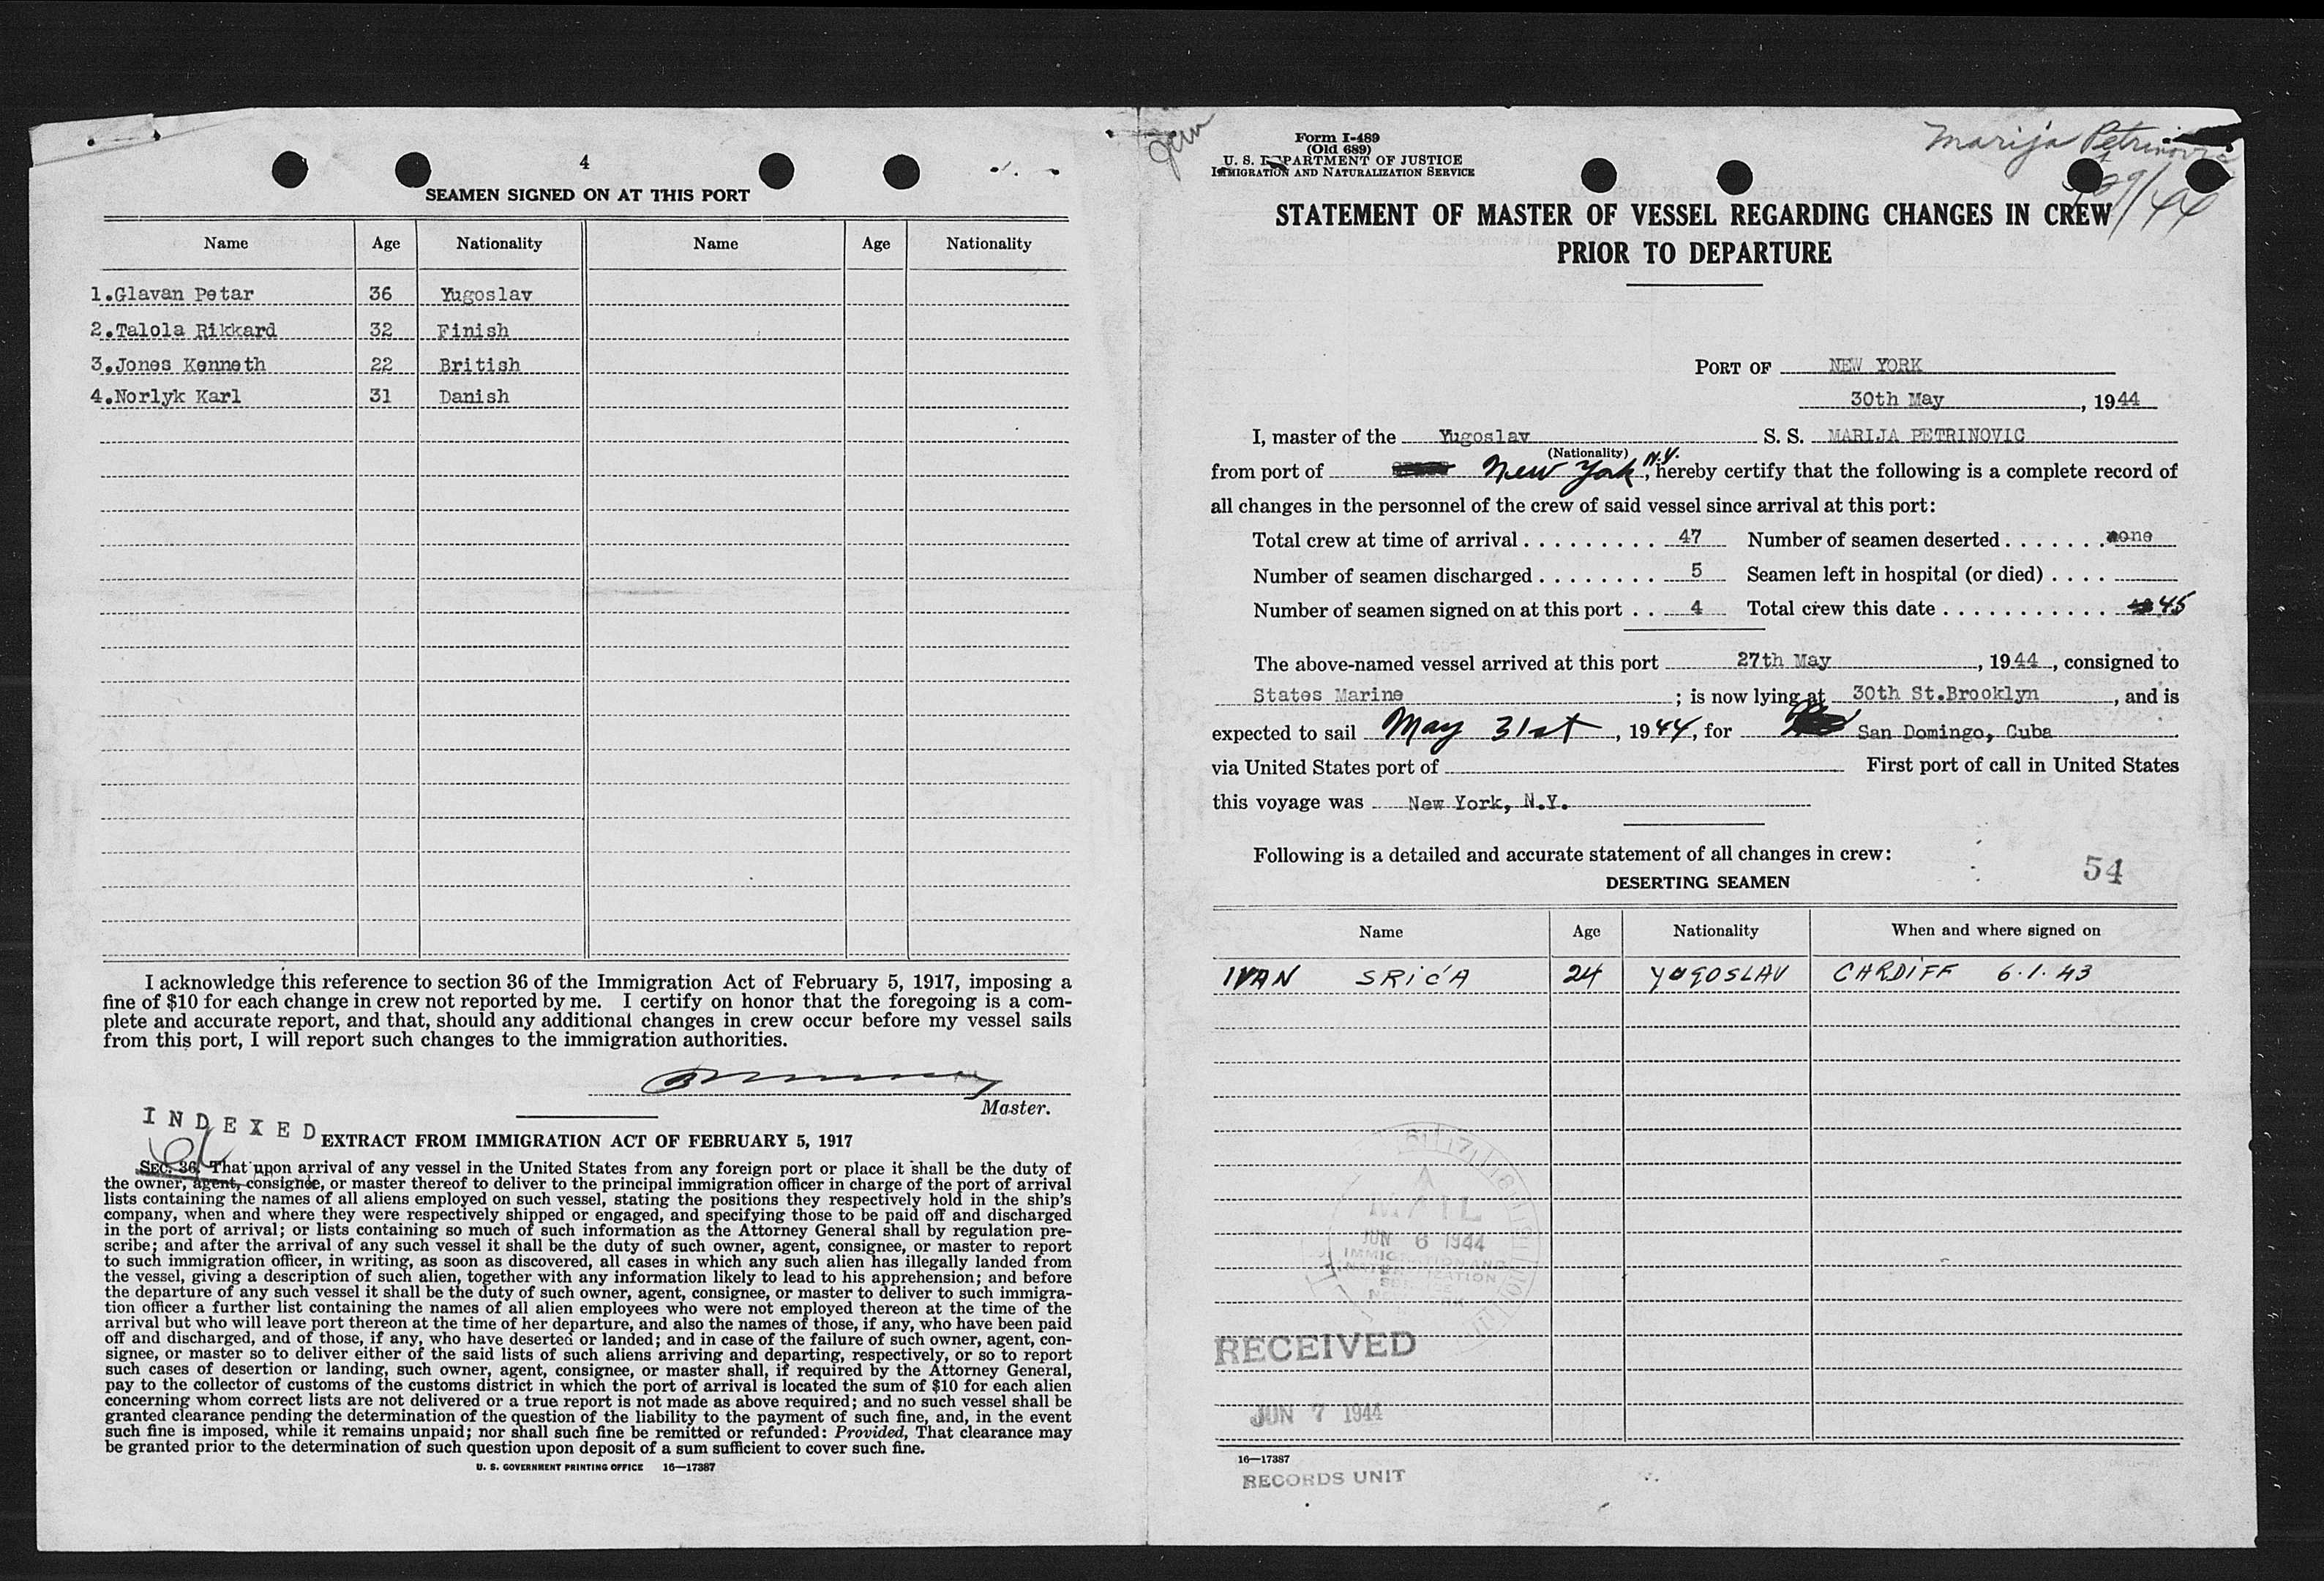 4
SEAMEN SIGNED ON AT THIS PORT
Name Age Nationality Name Age Nationality
1.Glavan Petar 36 Yugoslav
2.Talola Rikkard 32 Finish
3.Jones Kenneth 22 British
4.Norlyk Karl 31 Danish
I acknowledge this reference to section 36 of the Immigration Act of February 5, 1917, imposing a
fine of $10 for each change in crew not reported by me. I certify on honor that the foregoing is a com-
plete and accurate report, and that, should any additional changes in crew occur before my vessel sails
from this port, I will report such changes to the immigration authorities.
Master.
INDEXED
EXTRACT FROM IMMIGRATION ACT OF FEBRUARY 5, 1917
SEC. 36. That upon arrival of any vessel in the United States from any foreign port or place it shall be the duty of
the owner, agent, consignee, or master thereof to deliver to the principal immigration officer in charge of the port of arrival
lists containing the names of all aliens employed on such vessel, stating the positions they respectively hold in the ship's
company, when and where they were respectively shipped or engaged, and specifying those to be paid off and discharged
in the port of arrival; or lists containing so much of such information as the Attorney General shall by regulation pre-
scribe; and after the arrival of any such vessel it shall be the duty of such owner, agent, consignee, or master to report
to such immigration officer, in writing, as soon as discovered, all cases in which any such alien has illegally landed from
the vessel, giving a description of such alien, together with any information likely to lead to his apprehension; and before
the departure of any such vessel it shall be the duty of such owner, agent, consignee, or master to deliver to such immigra-
tion officer a further list containing the names of all alien employees who were not employed thereon at the time of the
arrival but who will leave port thereon at the time of her departure, and also the names of those, if any, who have been paid
off and discharged, and of those, if any, who have deserted or landed; and in case of the failure of such owner, agent, con-
signee, or master so to deliver either of the said lists of such aliens arriving and departing, respectively, or so to report
such cases of desertion or landing, such owner, agent, consignee, or master shall, if required by the Attorney General,
pay to the collector of customs of the customs district in which the port of arrival is located the sum of $10 for each alien
concerning whom correct lists are not delivered or a true report is not made as above required; and no such vessel shall be
granted clearance pending the determination of the question of the liability to the payment of such fine, and, in the event
such fine is imposed, while it remains unpaid; nor shall such fine be remitted or refunded: Provided, That clearance may
be granted prior to the determination of such question upon deposit of a sum sufficient to cover such fine.
U. S. GOVERNMENT PRINTING OFFICE 16—17387
Form I-489
(Old 689)
U. S. DEPARTMENT OF JUSTICE
IMMIGRATION AND NATURALIZATION SERVICE
Marija Petrinovic
STATEMENT OF MASTER OF VESSEL REGARDING CHANGES IN CREW
PRIOR TO DEPARTURE
PORT OF NEW YORK
30th May, 1944
I, master of the Yugoslav S. S. MARIJA PETRINOVIC
(Nationality)
from port of New York, N.Y. hereby certify that the following is a complete record of
all changes in the personnel of the crew of said vessel since arrival at this port:
Total crew at time of arrival . . . . . . . . . 47 Number of seamen deserted . . . . . . . none
Number of seamen discharged . . . . . . . . 5 Seamen left in hospital (or died) . . . .
Number of seamen signed on at this port . . 4 Total crew this date . . . . . . . . . . . 45
The above-named vessel arrived at this port 27th May, 1944, consigned to
States Marine ; is now lying at 30th St.Brooklyn, and is
expected to sail May 31st, 1944, for San Domingo, Cuba
via United States port of First port of call in United States
this voyage was New York, N.Y.
Following is a detailed and accurate statement of all changes in crew:
54
DESERTING SEAMEN
Name Age Nationality When and where signed on
IVAN SRIĆA 24 YUGOSLAV CARDIFF 6.1.43
MAIL
JUN 6 1944
IMMIGRATION AND
NATURALIZATION
SERVICE
RECEIVED
JUN 7 1944
16—17387
RECORDS UNIT